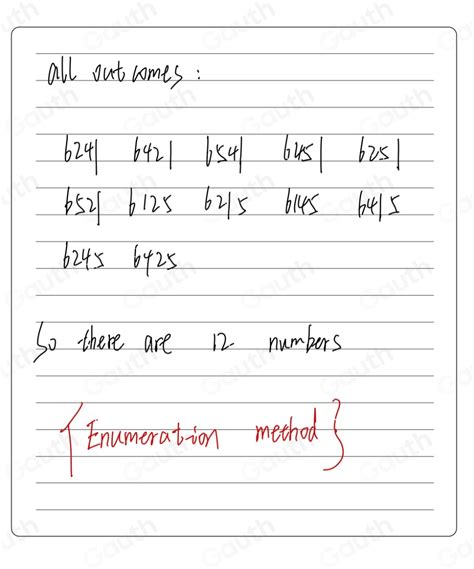 all outcomes:
6241 6421 6541 6451 6251
6521 6125 6215 6145 6415
6245 6425
So there are 12 numbers
{Enumeration method}